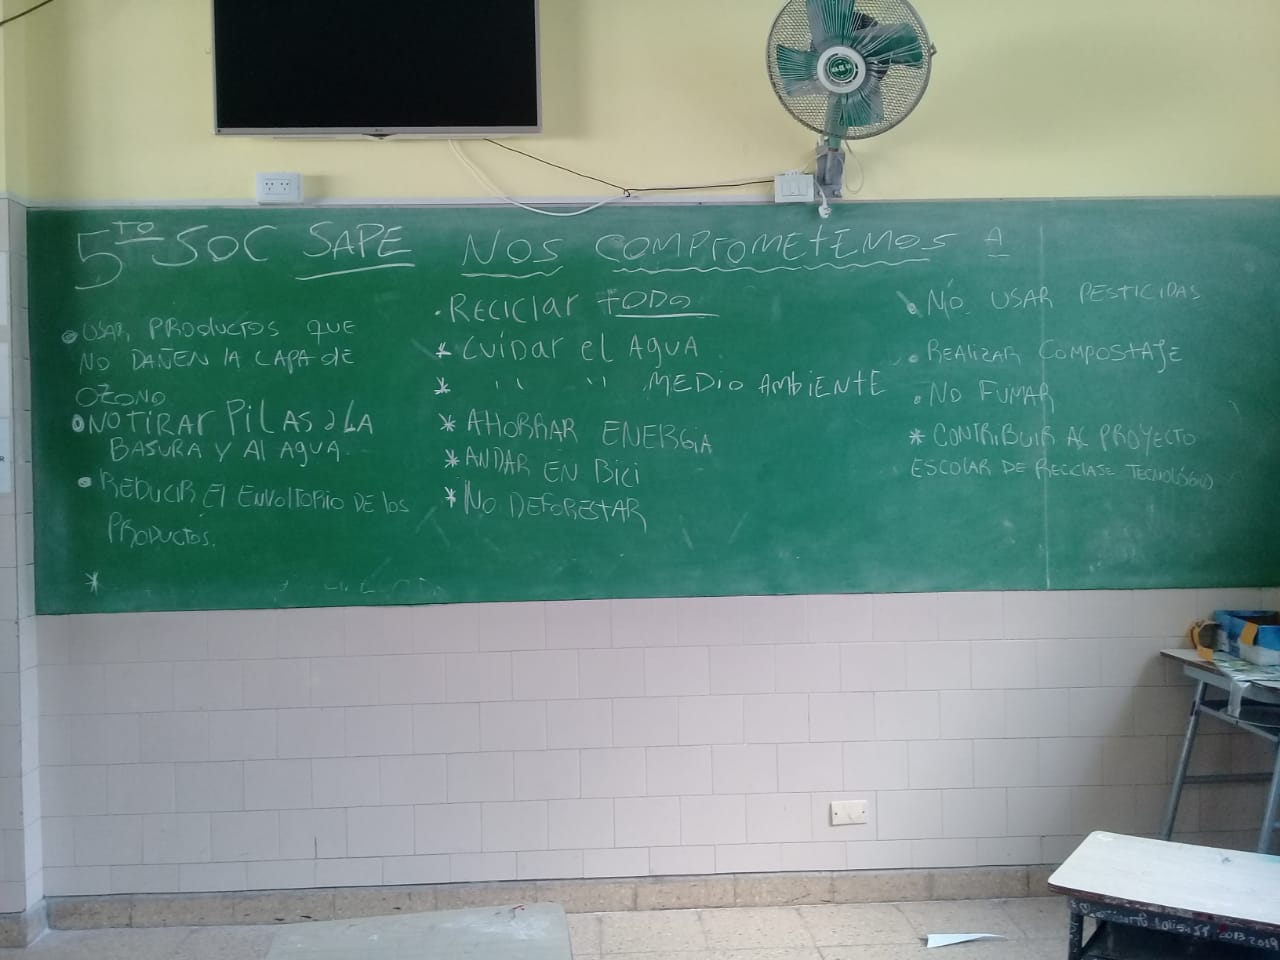 5TO SOC SAPE NOS COMPROMETEMOS A
• USAR PRODUCTOS QUE
NO DAÑEN LA CAPA DE
OZONO
• NO TIRAR PILAS a LA
BASURA Y Al AGUA.
• REDUCIR El ENVOLTORIO DE los
PRODUCTOS.
*
• RECICLAR tODO
* CUIDAR el AGUA
* " " MEDIO AMBIENTE
* AHORRAR ENERGIA
* ANDAR EN BICI
* NO DEFORESTAR
• NO USAR PESTICIDAS
• REALIZAR COMPOSTAJE
• NO FUMAR
* CONTRIBUIR AL PROYECTO
ESCOLAR DE RECICLAJE TECNOLÓGICO
2013 2019